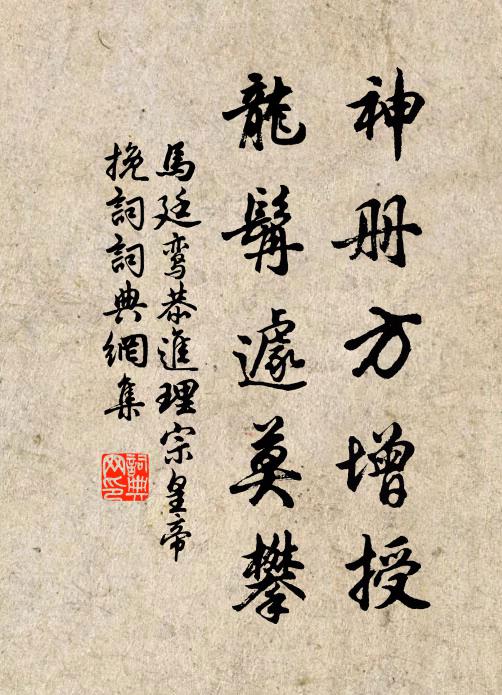 神册方增授
龍髯遽莫攀
馬廷鸾恭進理宗皇帝
挽詞詞典網集
詞典
网印